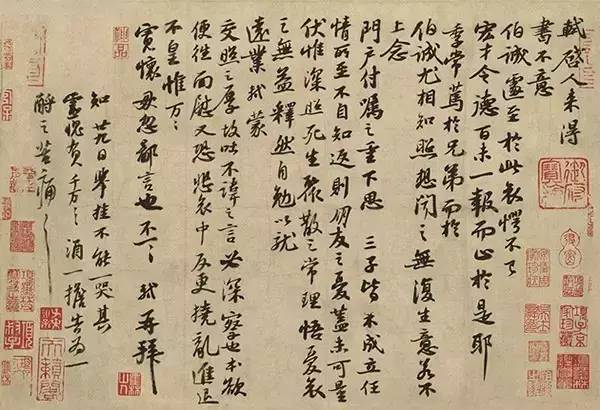 軾啓人来得
書不意
伯誠遽至於此哀愕不已
宏才令德百未一報而止於是耶
季常篤於兄弟而於
伯誠尤相知照想聞之無復生意若不
上念
門户付囑之重下思三子皆不成立任
情所至不自知返則朋友之憂蓋未可量
伏惟深照死生聚散之常理悟憂哀
之無益釋然自勉以就
遠業軾蒙
交照之厚故吐不諱之言必深察也本欲
便往面慰又恐悲哀中反更撓亂進退
不皇惟万万
寬懷毋忽鄙言也不一一軾再拜
知廿九日舉挂不能一哭其
靈愧負千万千万酒一擔告為一
酹之苦痛苦痛